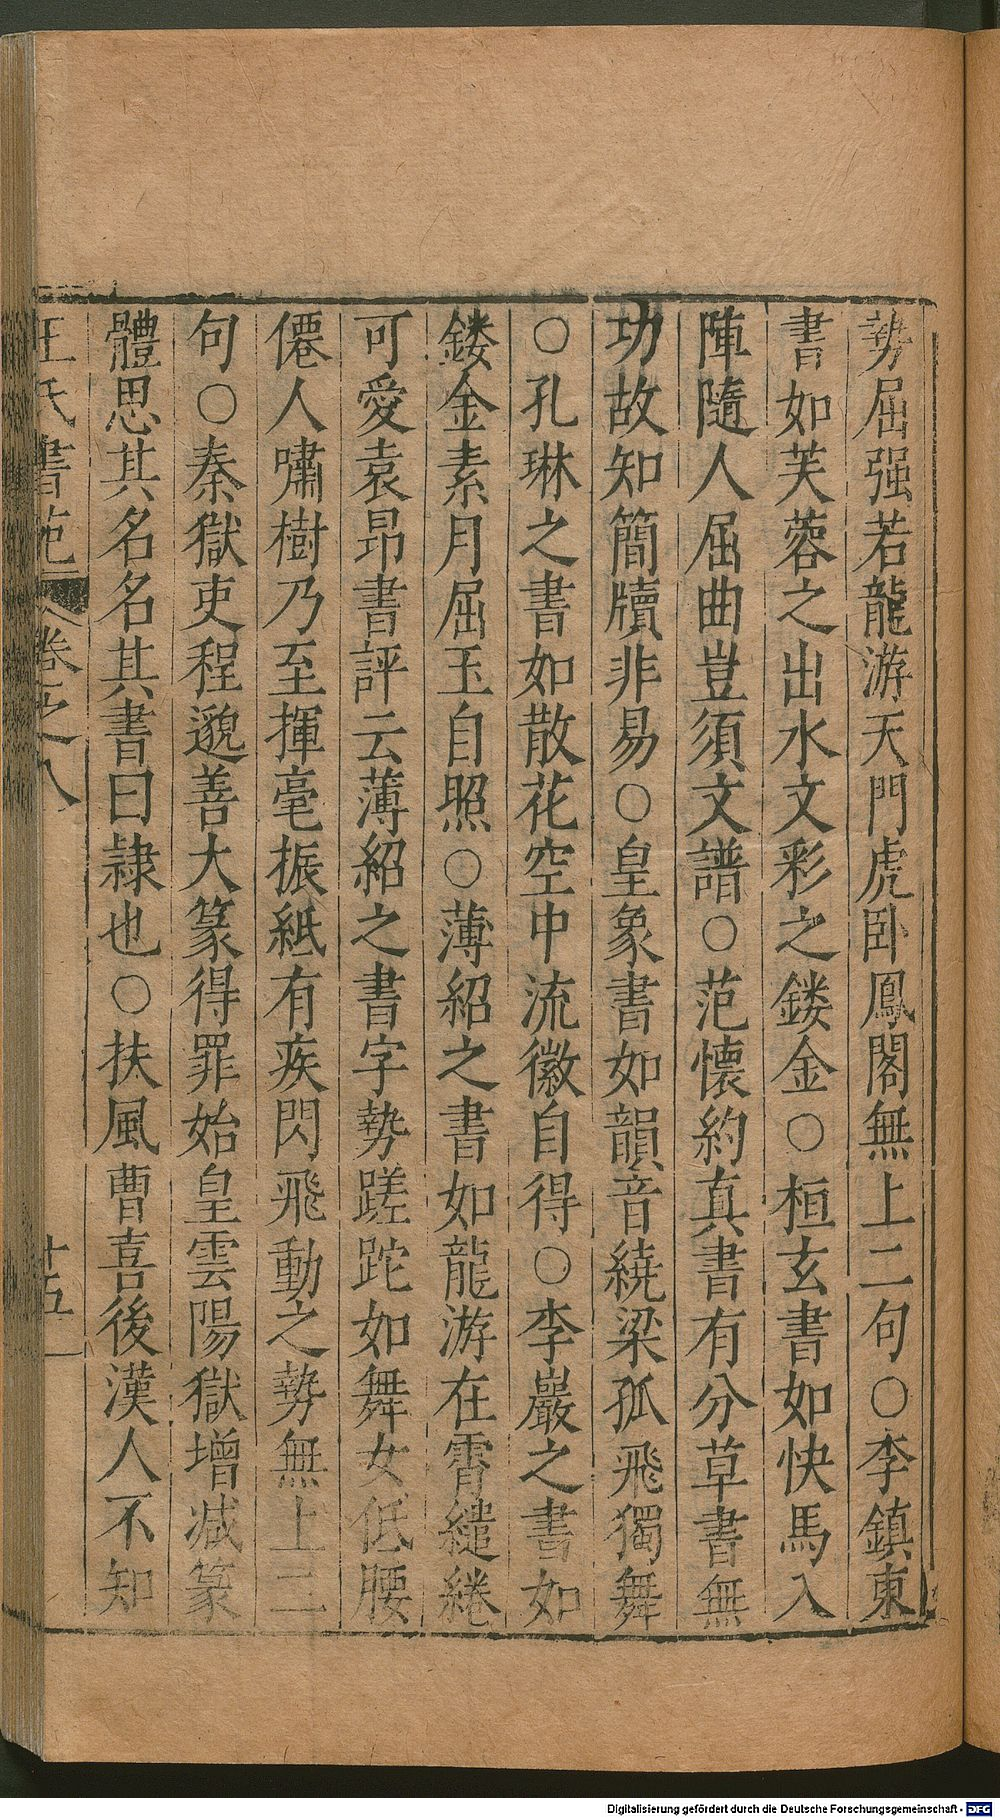 勢屈强若龍游天門虎卧鳳閣無上二句○李鎮東
書如芙蓉之出水文彩之鏤金○桓玄書如快馬入
陣隨人屈曲豈須文譜○范懷約真書有分草書無
功故知簡牘非易○皇象書如韻音繞梁孤飛獨舞
○孔琳之書如散花空中流徽自得○李巖之書如
鏤金素月屈玉自照○薄紹之書如龍游在霄繾綣
可愛袁昂書評云薄紹之書字勢蹉跎如舞女低腰
僊人嘯樹乃至揮毫振紙有疾閃飛動之勢無上二
句○秦獄吏程邈善大篆得罪始皇雲陽獄增减篆
體思其名名其書曰隷也○扶風曹喜後漢人不知
王氏書苑 卷之八 廿五
Digitalisierung gefördert durch die Deutsche Forschungsgemeinschaft - DFG